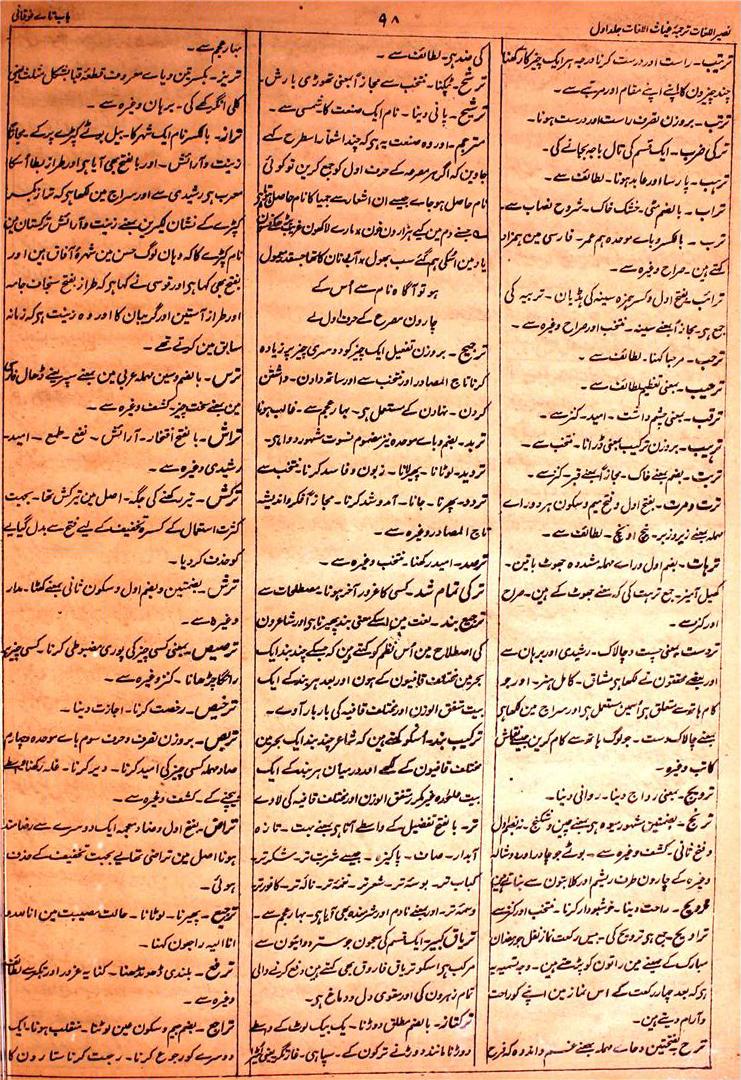 نصیر اللغات ترجمۂ غیاث اللغات جلد اول
۹۸
باب تائے فوقانی
ترتیب۔ راست اور درست کرنا و درجہ ہر ایک چیز کا رکھنا
چند چیزون کا اپنے اپنے مقام اور مرتبے سے۔
ترتب۔ بروزن تصرف راست اور درست ہونا۔
ترکی ضرب۔ ایک قسم کی تال باجہ بجانے کی۔
ترہب۔ پارسا اور عابد ہونا۔ لطائف سے۔
تراب۔ بالضم مٹی۔ خشک خاک۔ شروح نصاب سے۔
ترب۔ بالکسر و بائے موحدہ ہم عمر۔ فارسی مین ہمزاد
کہتے ہین۔ صراح وغیرہ سے۔
ترائب بفتح اول و کسر ہمزہ سینہ کی ہڈیان۔ تریبہ کی
جمع ہی۔ مجازاً بمعنے سینہ۔ منتخب اور صراح وغیرہ سے۔
ترحب۔ مرحبا کہنا۔ لطائف سے۔
ترحیب۔ بمعنی تعظیم لطائف سے۔
ترقب۔ بمعنی چشم داشت۔ امید۔ کنز سے۔
ترہیب۔ بروزن ترکیب بمعنی ڈرانا۔ منتخب سے۔
تربت۔ بضم بمعنے خاک۔ مجازاً بمعنے قبر۔ کنز سے۔
ترت و مرت۔ بفتح اول و فتح میم و سکون ہر دو رائے
مہملہ بمعنے زیر و زبر۔ نیچ اونچ۔ لطائف سے۔
ترہات۔ بضم اول و رائے مہملہ مشددہ جھوٹ باتین۔
کھیل آمیز۔ جمع ترہت کی کہ بمعنے جھوٹ کے ہین۔ صراح
اور کنز سے۔
تردست بمعنی چست و چالاک۔ رشیدی اور برہان سے
اور بعضے محققون نے لکھا ہی مشاق۔ کامل ہنر۔ اور جو
کام ہاتھ سے متعلق ہی اسمین مستعمل ہی اور سراج مین لکھا ہی
بمعنے چالاک دست۔ جو لوگ ہاتھ سے کام کرین جیسے نقاش
کاتب وغیرہ۔
ترویج۔ بمعنی رواج دینا۔ روانی دینا۔
ترنج۔ بضمتین مشہور میوہ ہی بمعنے چین و شکنج۔ بضم اول
و فتح ثانی۔ کشف وغیرہ سے۔ بوٹے جو چادر اور دوشالہ
وغیرہ کے چارون طرف ریشم اور کلابتون سے بناتے ہین
ترویح۔ راحت دینا۔ خوشبودار کرنا۔ منتخب اور کنز سے
تراویح۔ جمع ہی ترویح کی۔ بیس رکعت نماز نفل جو رمضان
مبارک کے مہینے مین راتون کو پڑھتے ہین۔ وجہ تسمیہ یہ
ہی کہ بعد چہار رکعت کے اس نماز مین اپنے کو راحت
و آرام دیتے ہین۔
ترح بفتحتین و حائے مہملہ بمعنے غم و اندوہ کہ فرح
کی ضد ہی۔ لطائف سے۔
ترشح۔ ٹپکنا۔ منتخب سے مجازاً بمعنی تھوڑی بارش۔
ترشیح۔ پانی دینا۔ نام ایک صنعت کا شمسی سے۔
مترجم۔ اور وہ صنعت یہ ہی کہ چند اشعار اسطرح کے
جاوین کہ اگر ہر مصرعہ کے حرف اول کو جمع کرین تو کوئی
نام حاصل ہو جاے جیسے ان اشعار سے جیپا کا نام حاصل ہوتا ہی
یاد مین اسکی ہم گئے سب بھول
ہو تو آگاہ نام سے اُس کے
چارون مصرع کے حرف اول لے
ترجیح۔ بروزن تفعیل ایک چیز کو دوسری چیز پر زیادہ
کرنا تاج المصادر اور منتخب سے اور ساتھ دادن۔ داشتن
کردن۔ نہادن کے مستعمل ہی۔ بہار عجم سے۔ غالب ہونا
تربد۔ بضم و بائے موحدہ نیز مضموم نسوت مشہور دوا ہی۔
تردید۔ لوٹانا۔ پھیرانا۔ زبون و فاسد کرنا۔ منتخب سے
تردد۔ پھرنا۔ جانا۔ آمد و شد کرنا۔ مجازاً فکر و اندیشہ
تاج المصادر وغیرہ سے۔
ترصد۔ امید رکھنا۔ منتخب وغیرہ سے۔
ترکی تمام شد۔ کسی کا غرور آخر ہونا۔ مصطلحات سے
ترجیع بند۔ لغت مین اسکے معنی بند پھیرنا ہی اور شاعرون
کی اصطلاح مین اُس نظم کو کہتے ہین کہ جسکے چند بند ایک
بحر مین مختلف قافیون کے ہون اور بعد ہر بند کے ایک
بیت متفق الوزن اور مختلف قافیہ کی بار بار آوے۔
ترکیب بند۔ اسکو کہتے ہین کہ شاعر چند بند ایک بحر مین
مختلف قافیون کے کہے اور درمیان ہر بند کے ایک
بیت علیحدہ غیر مکرر متفق الوزن اور مختلف قافیہ کی لاوے
تر۔ بالفتح تفضیل کے واسطے آتا ہی بمعنے بہت۔ تازہ
آبدار۔ صاف۔ پاکیزہ۔ جیسے شربت تر۔ شکر تر۔
کباب تر۔ بوسۂ تر۔ شعر تر۔ نغمۂ تر۔ نالۂ تر۔ کافور تر
وسمۂ تر۔ اور بمعنے نادم اور شرمندہ بھی آیا ہی۔ بہار عجم سے۔
تریاق کبیر۔ ایک قسم کی معجون جو ستر دوائیون سے
مرکب ہی اسکو تریاق فاروق بھی کہتے ہین دفع کرنے والی
تمام زہرون کی اور مقوی دل و دماغ ہی۔
ترکتاز۔ بالضم مطلق دوڑنا۔ یک بیک لوٹ کے واسطے
دوڑنا مانند دوڑنے ترکون کے۔ سپاہی۔
بہار عجم سے۔
تریز۔ بکسرتین و یائے معروف قطعہ قبا بشکل مثلث یعنی
کلی انگرکھے کی۔ برہان وغیرہ سے۔
تراز۔ بالکسر نام ایک شہر کا۔ بیل بوٹے کپڑے پر کے۔ مجازاً
زینت و آرائش۔ اور بالفتح بھی آیا ہی اور طراز بطا اُسکا
معرب ہی رشیدی سے اور سراج مین لکھا ہی کہ تراز بکسر
کپڑے کے نشان لکیرین بمعنے زینت و آرائش ترکستان مین
نام کپڑے کا کہ وہان لوگ حسن مین شہرۂ آفاق ہین اور
بفتح بھی کہا ہی اور قوسی نے کہا ہی کہ طراز بفتح سنجاف جامہ
اور طراز آستین اور گریبان کا اور وہ زینت ہی کہ زمانہ
سابق مین کرتے تھے۔
ترس۔ بالضم و سین مہملہ عربی مین بمعنے سپر یعنے ڈھال فارسی
مین بمعنے سخت چیز۔ کشف وغیرہ سے۔
تراش۔ بالفتح افتخار۔ آرائش۔ نفع۔ طمع۔ امید۔
رشیدی وغیرہ سے۔
ترکش۔ تیر رکھنے کی جگہ۔ اصل مین تیرکش تھا۔ بجہت
کثرت استعمال کے کسرہ تخفیف کے لیے فتح سے بدل گیا یے
کو حذف کر دیا۔
ترش۔ بضمتین و بضم اول و سکون ثانی بمعنے کھٹا۔ مدار
وغیرہ سے۔
ترصیص۔ بمعنی کسی چیز کی پوری مضبوطی کرنا۔ کسی چیز پر
رانگا چڑھانا۔ کنز وغیرہ سے۔
ترخیص۔ رخصت کرنا۔ اجازت دینا۔
تربص۔ بروزن تصرف و حرف سوم بائے موحدہ و چہارم
صاد مہملہ کسی چیز کی امید کرنا۔ دیر کرنا۔ غلہ رکھنا واسطے
بیچنے کے۔ کشف وغیرہ سے۔
تراض۔ بفتح اول و ضاد معجمہ ایک دوسرے سے رضامند
ہونا اصل مین تراضی تھا یے بجہت تخفیف کے حذف
ہوئی۔
ترجیع۔ پھیرنا۔ لوٹانا۔ حالت مصیبت مین انا للہ و
انا الیہ راجعون کہنا۔
ترفع۔ بلندی ڈھونڈھنا۔ کنایہ غرور اور تکبر سے لطائف
وغیرہ سے۔
تراجع۔ بفتح جیم و سکون عین لوٹنا۔ منقلب ہونا۔ ایک
دوسرے کو رجوع کرنا۔ رجعت کرنا ستارون کا